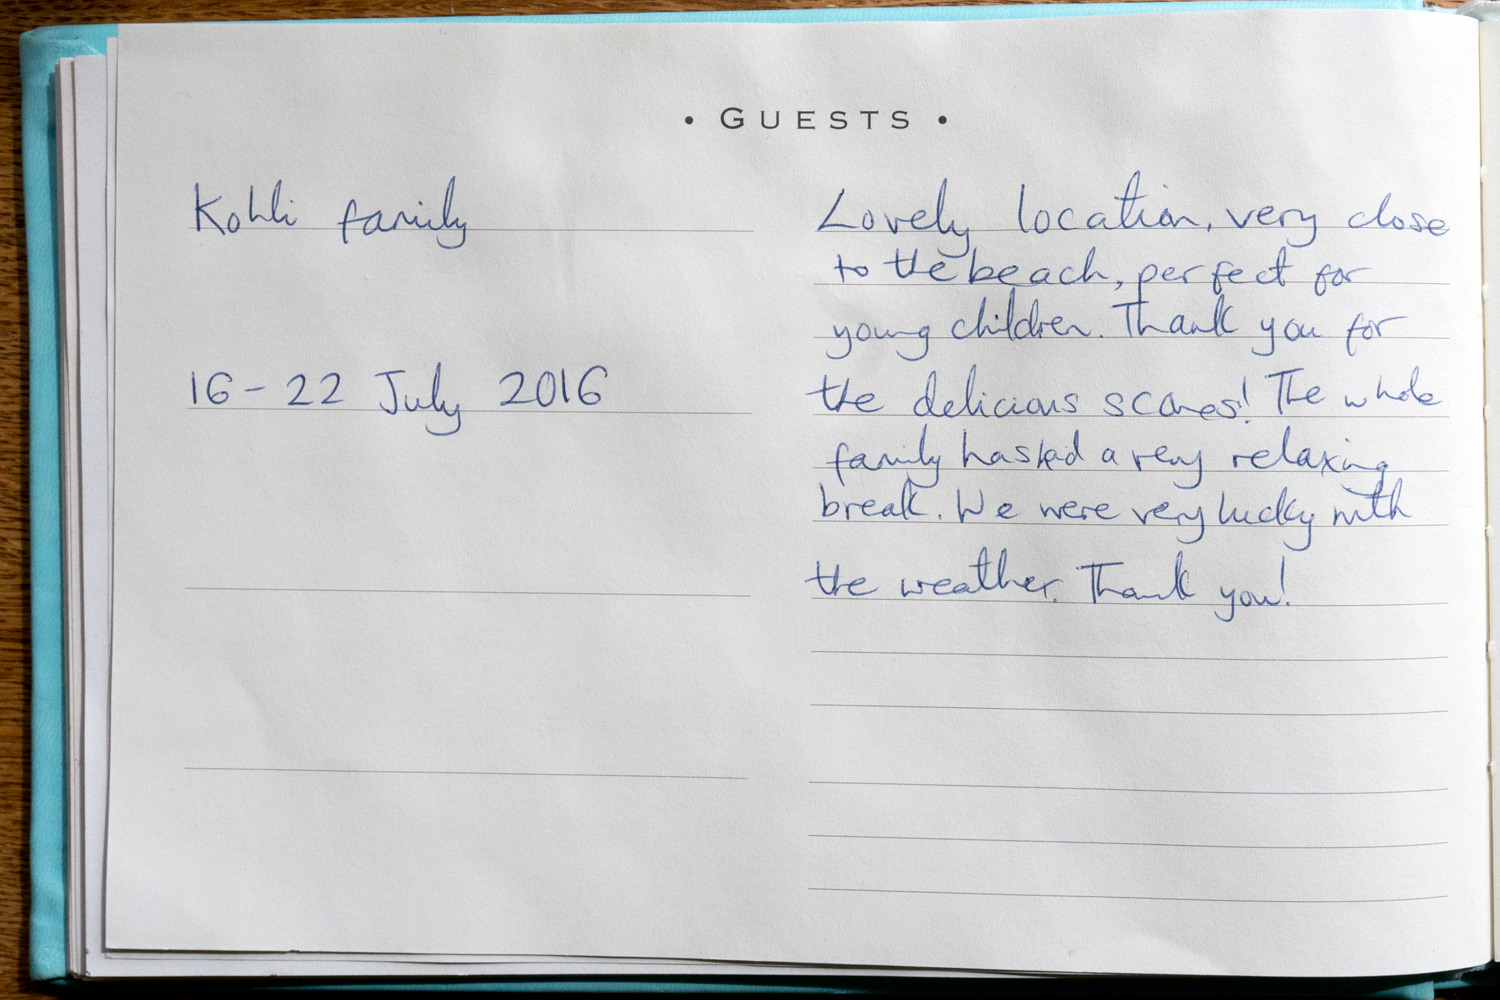 • GUESTS •
Kohli family
16-22 July 2016
Lovely location, very close
to the beach, perfect for
young children. Thank you for
the delicious scones! The whole
family has had a very relaxing
break. We were very lucky with
the weather. Thank you!